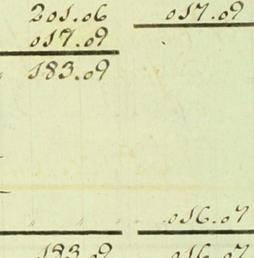 201.06 017.09
017.09
183.09
016.07
183.09 016.07